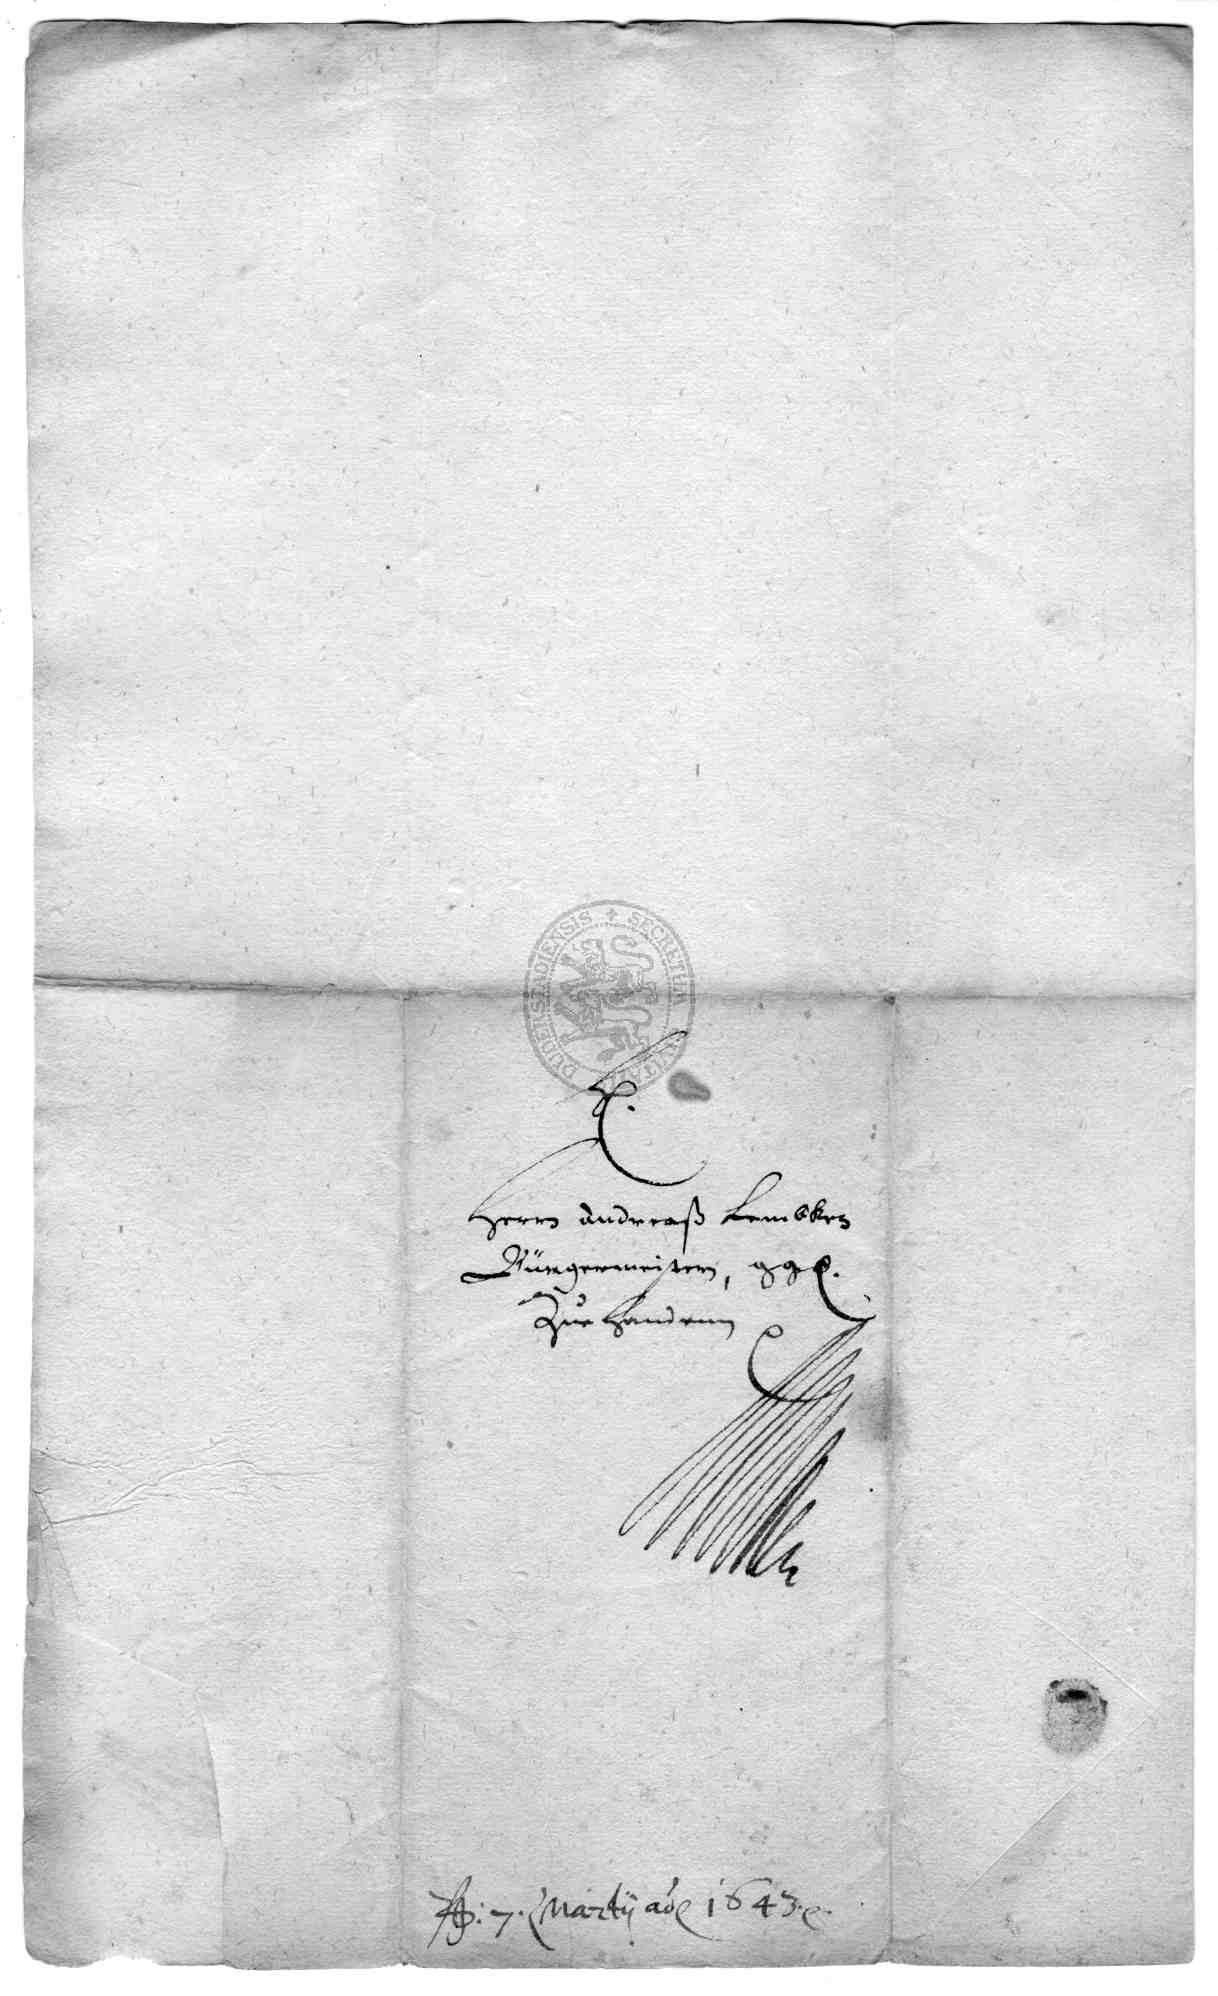 SECRETUM CIVITATIS DUDERSTADIENSIS
H.
Herrn Andreaß Lembken
Bürgermeistern, ggl.
Zue handenn
7. Martij ao 1643.